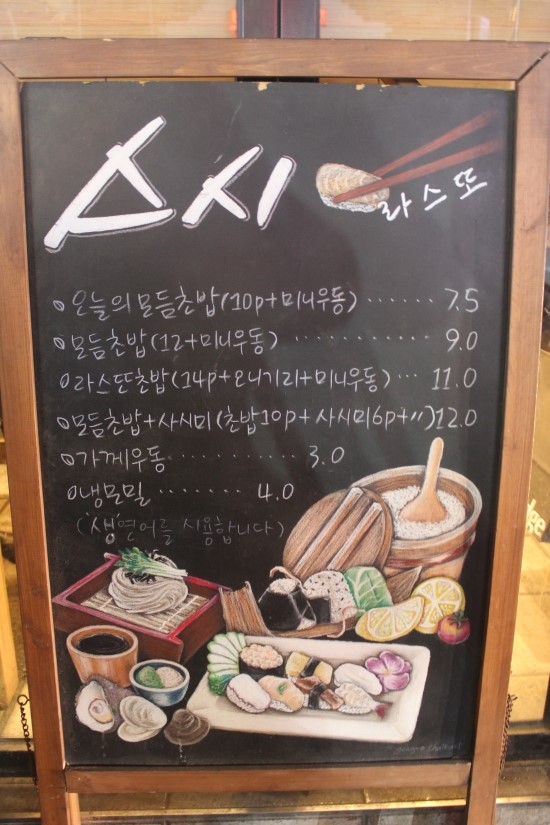 스시 라스또
오늘의 모듬초밥(10p+미니우동) ······ 7.5
모듬초밥(12+미니우동) ·········· 9.0
라스또초밥(14p+오니기리+미니우동) ··· 11.0
모듬초밥+사시미(초밥10p+사시미6p+〃)12.0
가께우동 ·········· 3.0
냉모밀 ······· 4.0
('생'연어를 사용합니다)